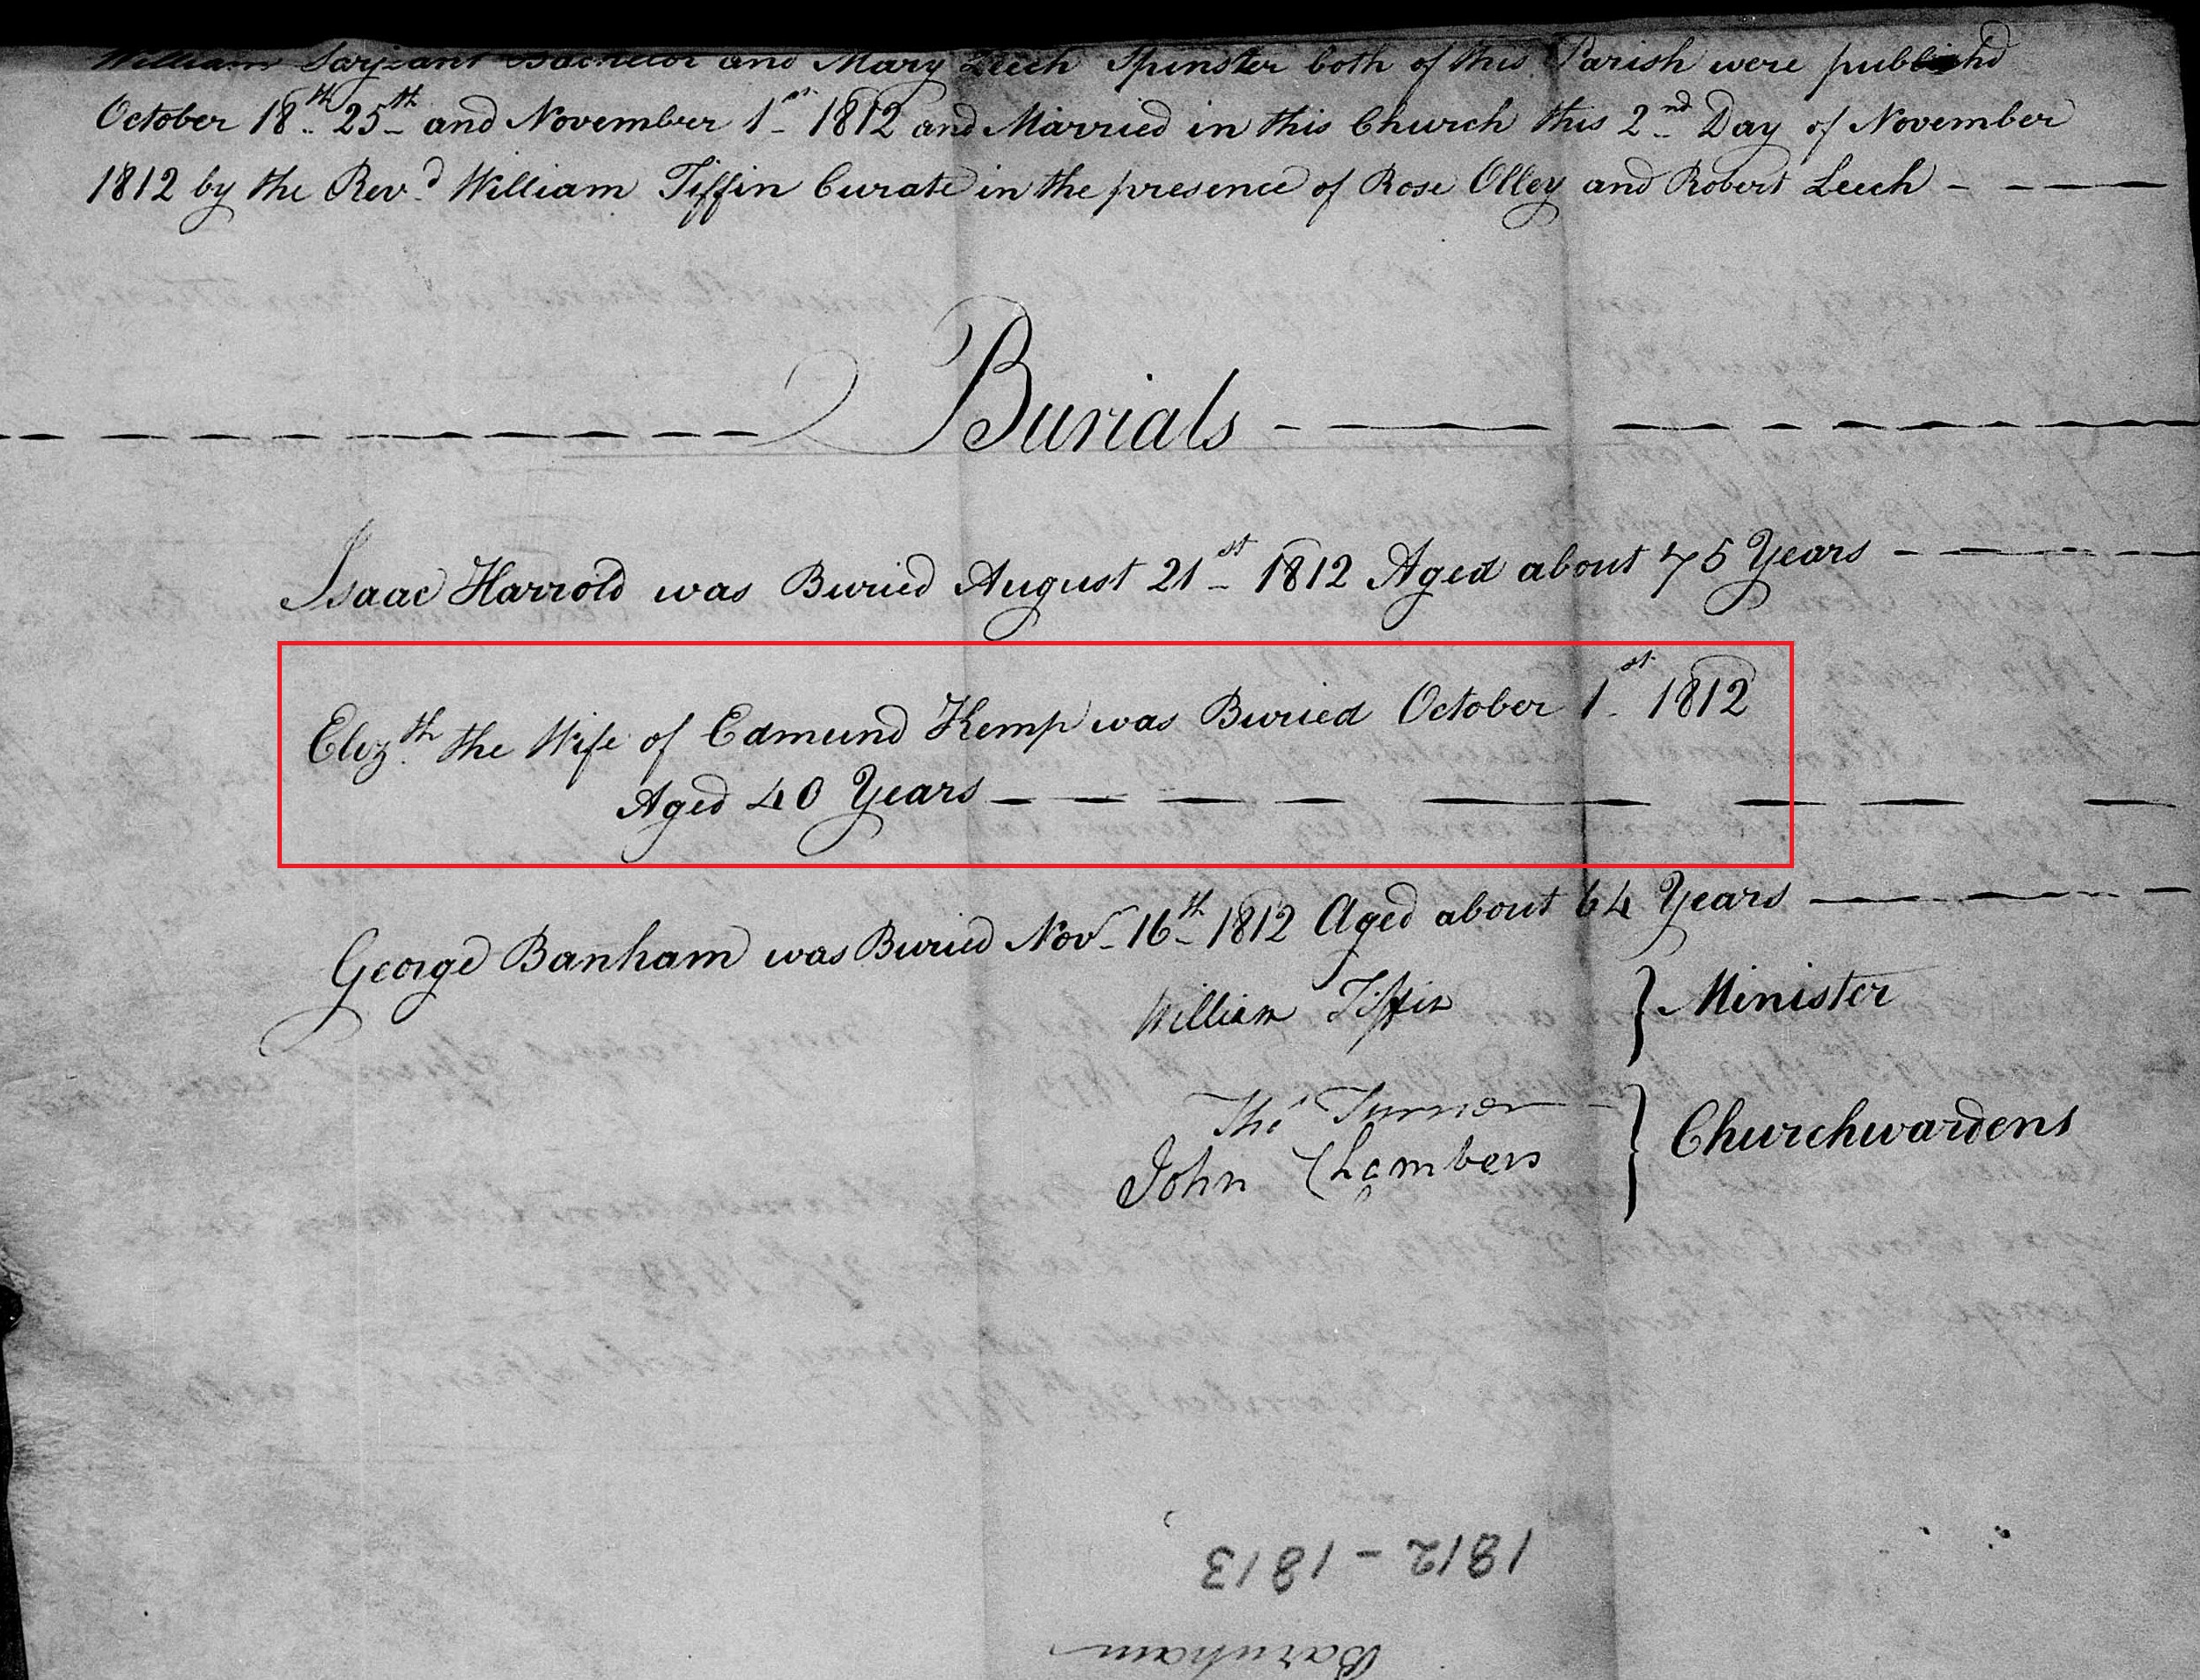 William Sarjeant Bachelor and Mary Leech Spinster both of this Parish were published
October 18th 25th and November 1st 1812 and Married in this Church this 2nd Day of November
1812 by the Revd William Tiffin Curate in the presence of Rose Olley and Robert Leech
Burials
Isaac Harrold was Buried August 21st 1812 Aged about 75 Years
Elizth the Wife of Edmund Kemp was Buried October 1st 1812
Aged 40 Years
George Banham was Buried Novr 16th 1812 Aged about 64 Years
William Tiffin } Minister
Thos Turner
John Chambers } Churchwardens
1812 - 1813
Barnham